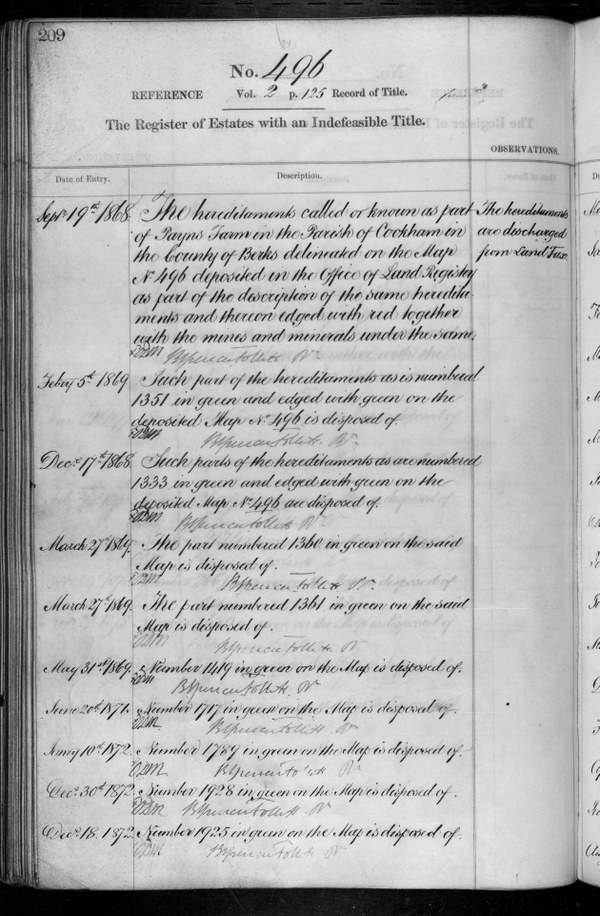 209
No. 496
REFERENCE Vol. 2 p. 125 Record of Title.
The Register of Estates with an Indefeasible Title.
OBSERVATIONS.
Date of Entry. Description.
Septr 19th 1868. The hereditaments called or known as part The hereditaments
of Payns Farm in the Parish of Cookham in are discharged
the County of Berks delineated on the Map from Land Tax.
No 496 deposited in the Office of Land Registry
as part of the description of the same heredita-
ments and thereon edged with red together
with the mines and minerals under the same.
Febry 5th 1869 Such part of the hereditaments as is numbered
1351 in green and edged with green on the
deposited Map No 496 is disposed of.
Decr 17th 1868. Such parts of the hereditaments as are numbered
1333 in green and edged with green on the
deposited Map No 496 are disposed of.
March 27th 1869. The part numbered 1360 in green on the said
Map is disposed of.
March 27th 1869. The part numbered 1361 in green on the said
Map is disposed of.
May 31st 1869. Number 1419 in green on the Map is disposed of.
June 20th 1871. Number 1717 in green on the Map is disposed of.
Janry 10th 1872. Number 1789 in green on the Map is disposed of.
Decr 30th 1872 Number 1928 in green on the Map is disposed of.
Decr 18. 1872. Number 1925 in green on the Map is disposed of.